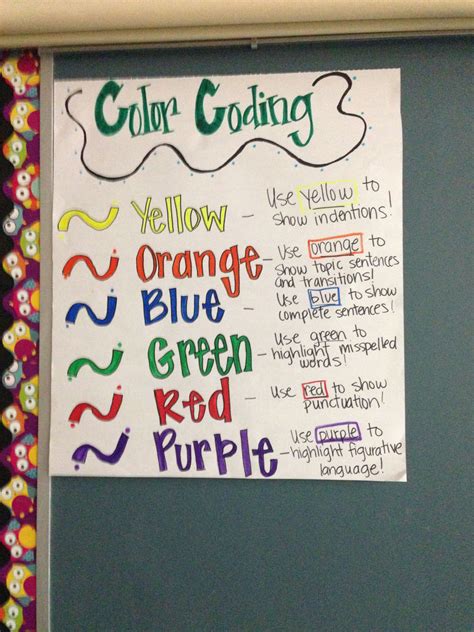 Color Coding
Yellow – Use yellow to
show indentions!
Orange – Use orange to
show topic sentences
and transitions!
Blue – Use blue to show
complete sentences!
Green – Use green to
highlight misspelled
words!
Red – Use red to show
punctuation!
Purple – Use purple to
highlight figurative
language!